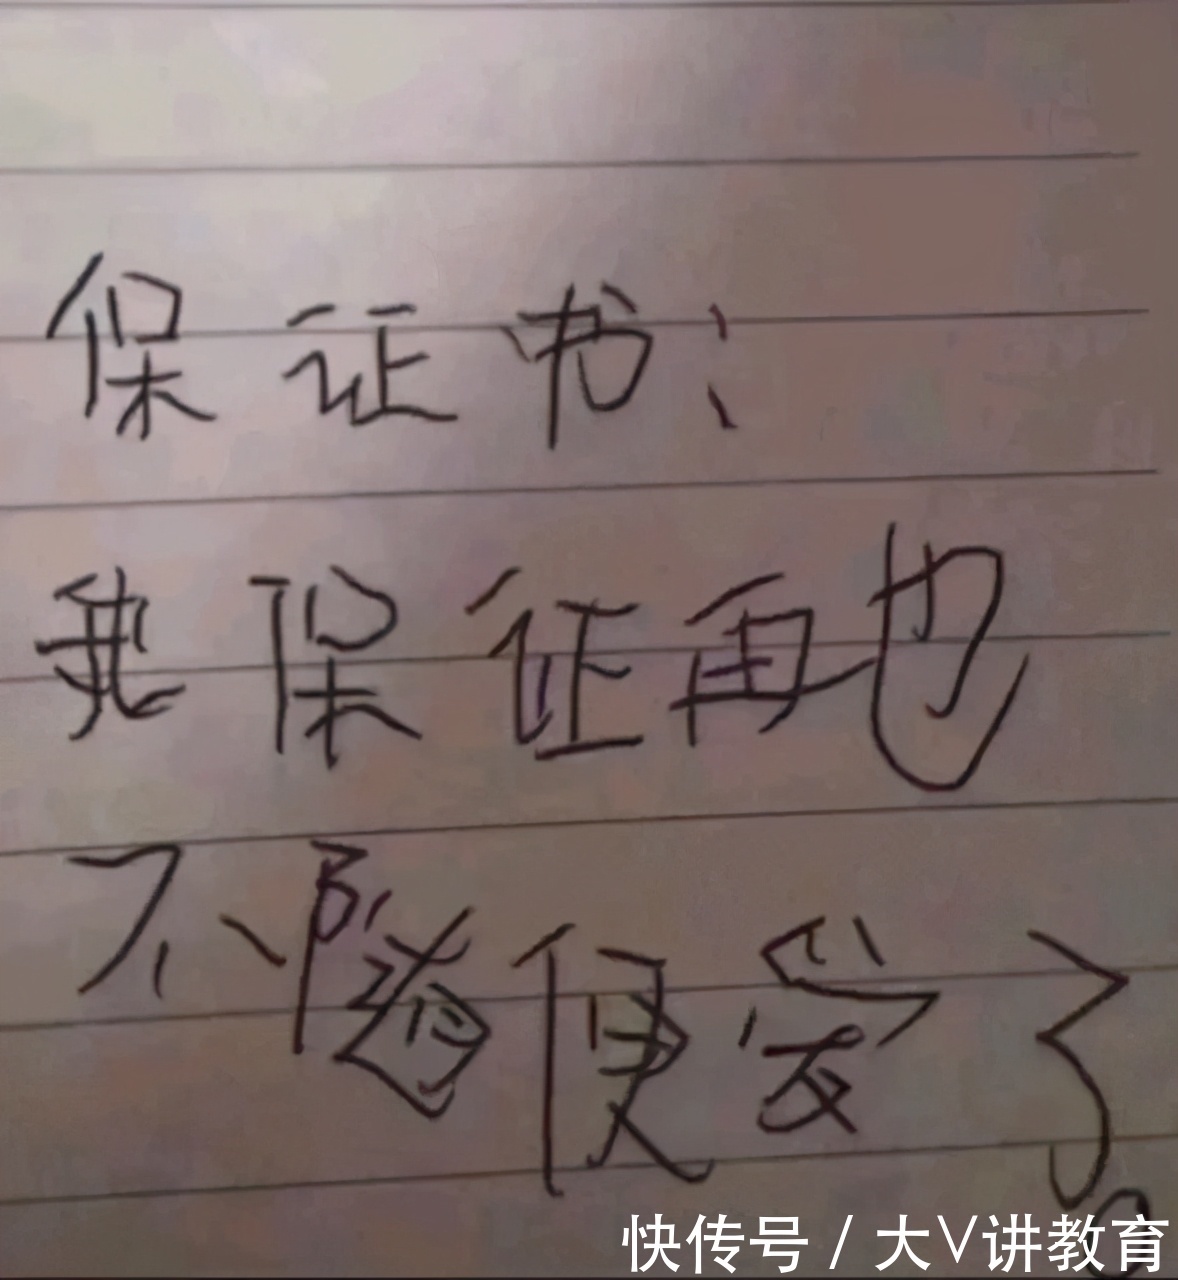 保证书：
我保证再也
不随便爱了。
快传号/大V讲教育